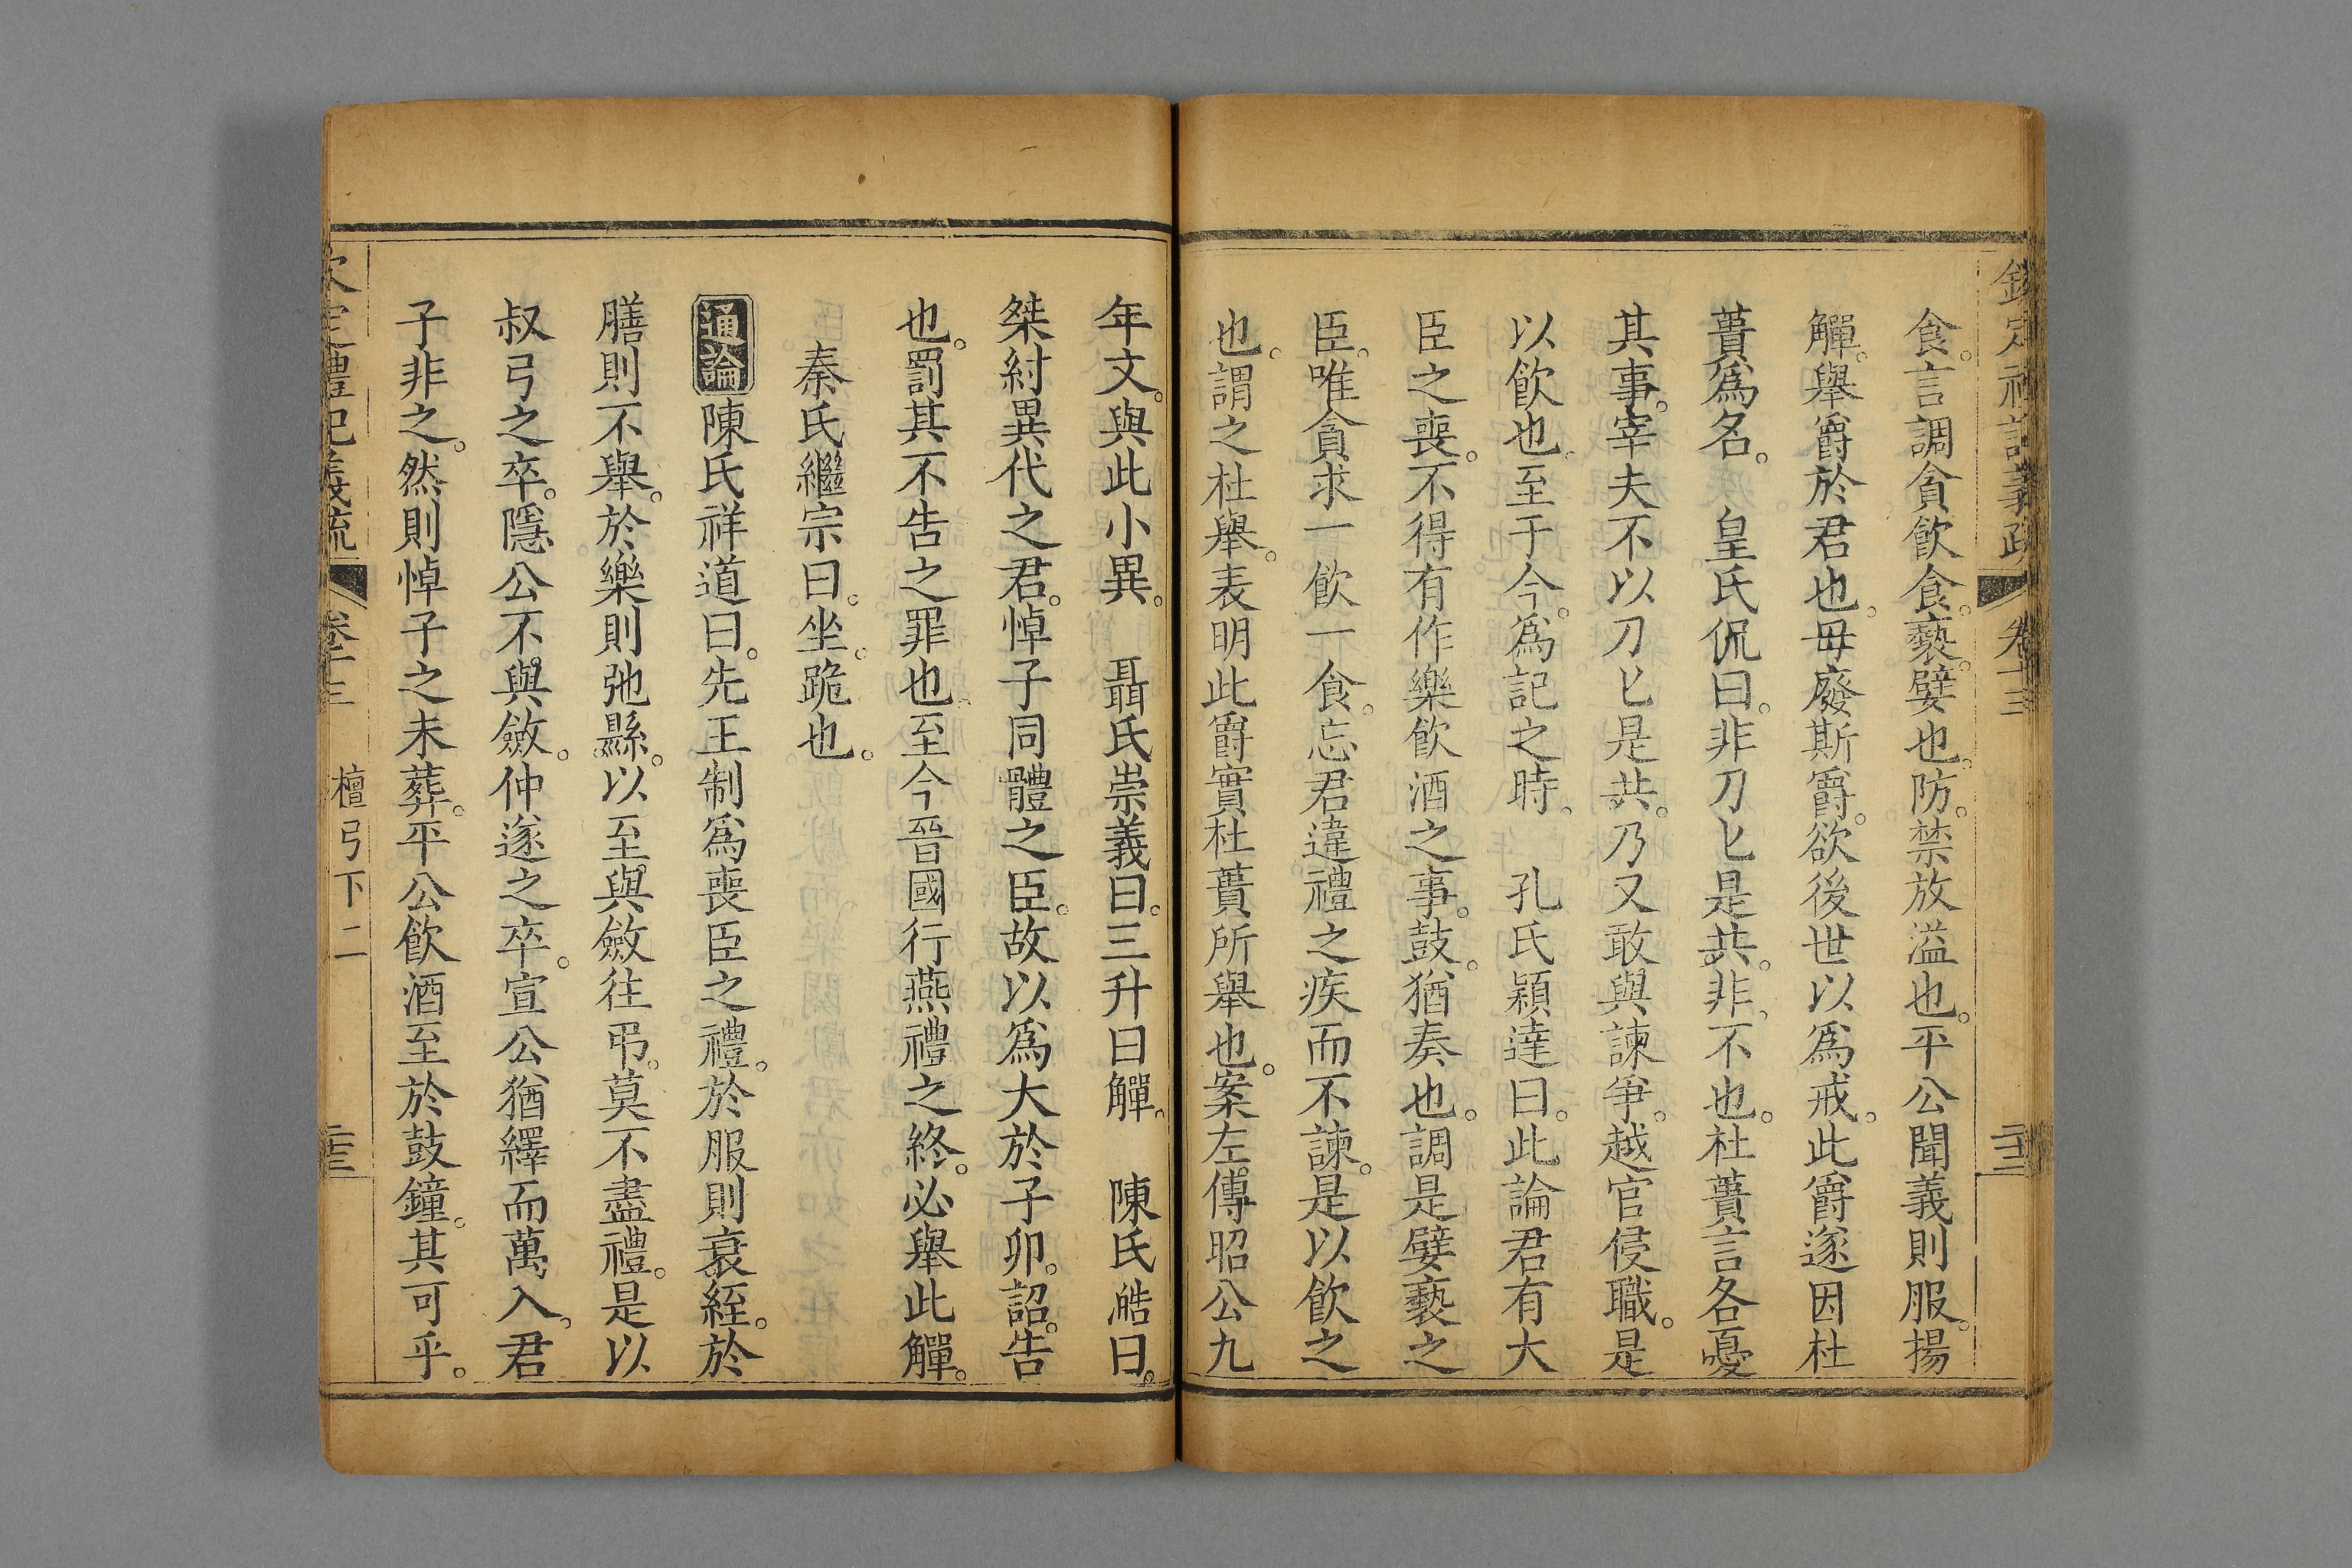 欽定禮記義疏 卷十三 二十三
食。言調貪飲食。褻。嬖也。防。禁放溢也。平公聞義則服。揚
觶。舉爵於君也。毋廢斯爵。欲後世以爲戒。此爵遂因杜
蕢爲名。 皇氏侃曰。非刀匕是共。非、不也。杜蕢言各憂
其事。宰夫不以刀匕是共。乃又敢與諫爭。越官侵職。是
以飲也。至于今。爲記之時。 孔氏穎達曰。此論君有大
臣之喪。不得有作樂飲酒之事。鼓。猶奏也。調是嬖褻之
臣。唯貪求一飲一食。忘君違禮之疾而不諫。是以飲之
也。謂之杜舉。表明此爵實杜蕢所舉也。案左傳昭公九
年文。與此小異。 聶氏崇義曰。三升曰觶。 陳氏澔曰。
桀紂異代之君。悼子同體之臣。故以爲大於子卯。詔。告
也。罰其不告之罪也。至今晉國行燕禮之終。必舉此觶。
秦氏繼宗曰。坐。跪也。
通論 陳氏祥道曰。先王制爲喪臣之禮。於服則衰絰。於
膳則不舉。於樂則弛縣。以至與斂往弔。莫不盡禮。是以
叔弓之卒。隱公不與斂。仲遂之卒。宣公猶繹而萬入、君
子非之。然則悼子之未葬。平公飲酒至於鼓鐘。其可乎。
欽定禮記義疏 卷十三 檀弓下二 二十三